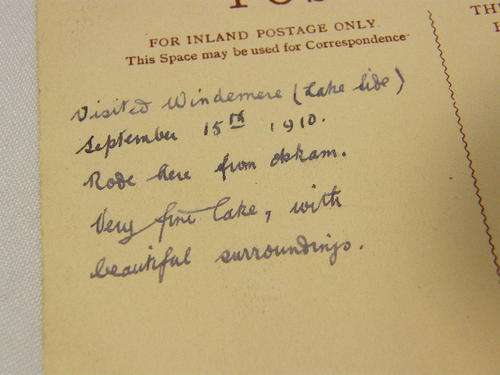 POS
FOR INLAND POSTAGE ONLY.
This Space may be used for Correspondence
TH
Visited Windemere (Lake Side)
September 15th 1910.
Rode here from Askam.
Very fine lake, with
beautiful surroundings.